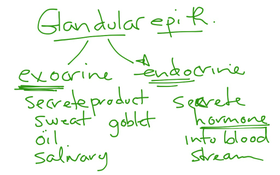 Glandular epi R.
exocrine endocrine
secrete product secrete
sweat goblet hormone
oil into blood
salivary stream